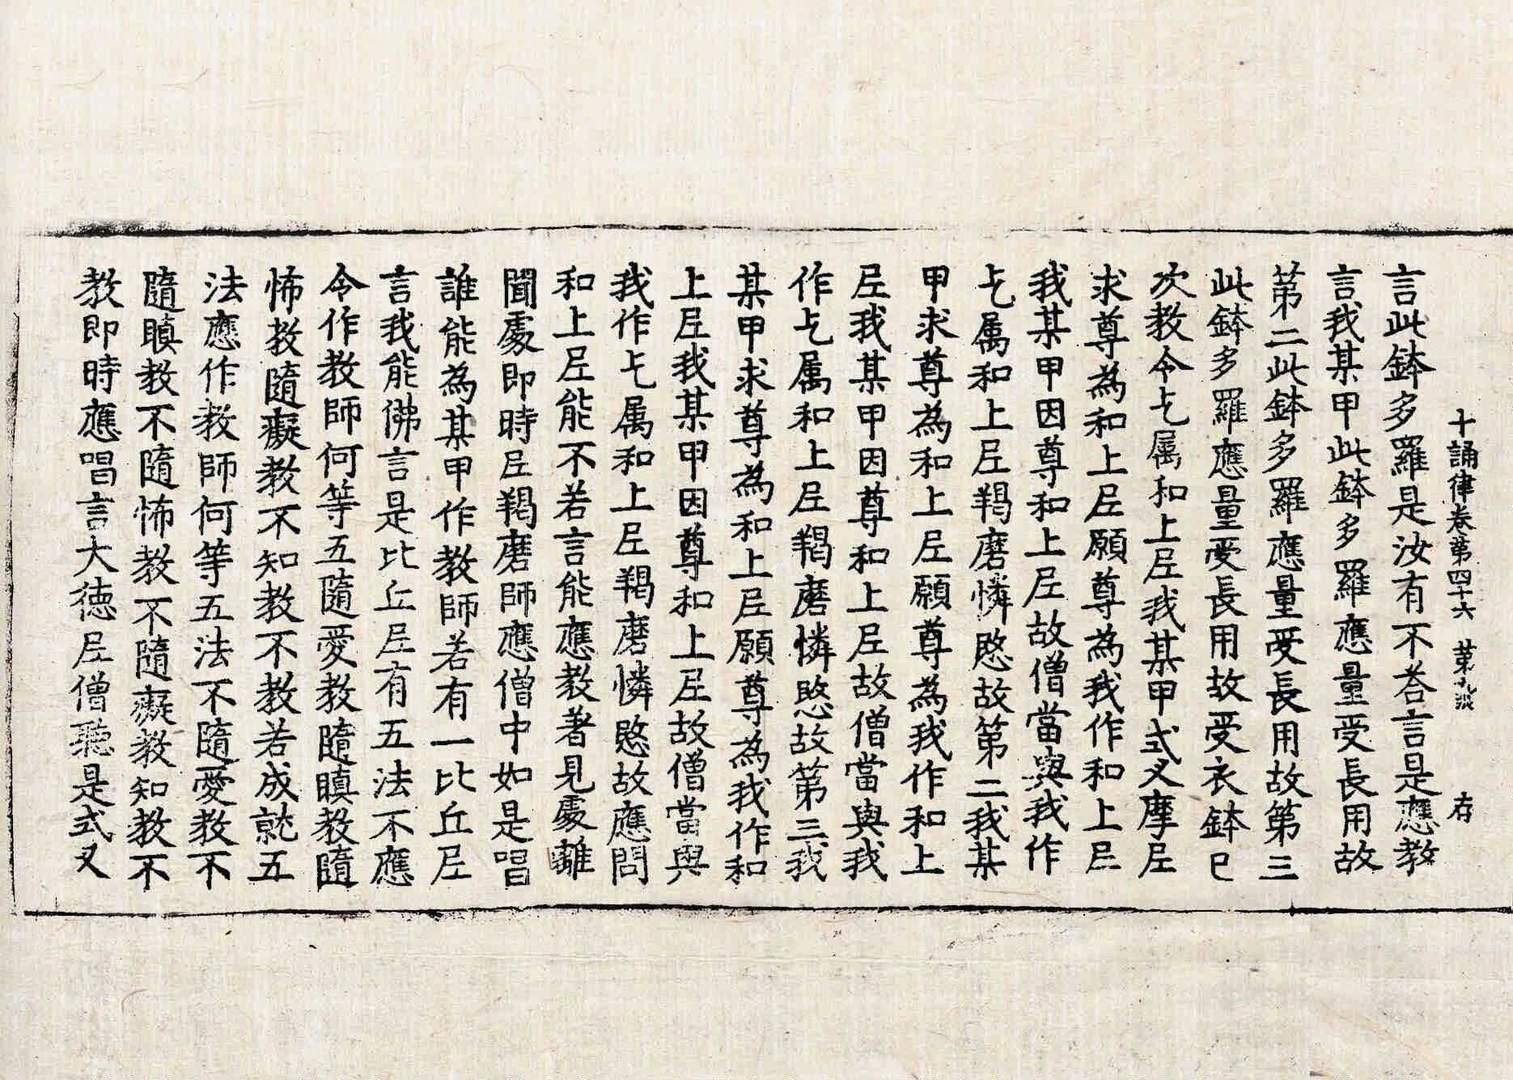 十誦律卷第四十六 第九張 存
言此鉢多羅是汝有不荅言是應教
言我某甲此鉢多羅應量受長用故
第二此鉢多羅應量受長用故第三
此鉢多羅應量受長用故受衣鉢已
次教令乞属和上尼我某甲式叉摩尼
求尊為和上尼願尊為我作和上尼
我某甲因尊和上尼故僧當與我作
乞属和上尼羯磨憐愍故第二我某
甲求尊為和上尼願尊為我作和上
尼我某甲因尊和上尼故僧當與我
作乞属和上尼羯磨憐愍故第三我
某甲求尊為和上尼願尊為我作和
上尼我某甲因尊和上尼故僧當與
我作乞属和上尼羯磨憐愍故應問
和上尼能不若言能應教著見處離
聞處即時尼羯磨師應僧中如是唱
誰能為某甲作教師若有一比丘尼
言我能佛言是比丘尼有五法不應
令作教師何等五隨愛教隨瞋教隨
怖教隨癡教不知教不教若成就五
法應作教師何等五法不隨愛教不
隨瞋教不隨怖教不隨癡教知教不
教即時應唱言大徳尼僧聽是式叉